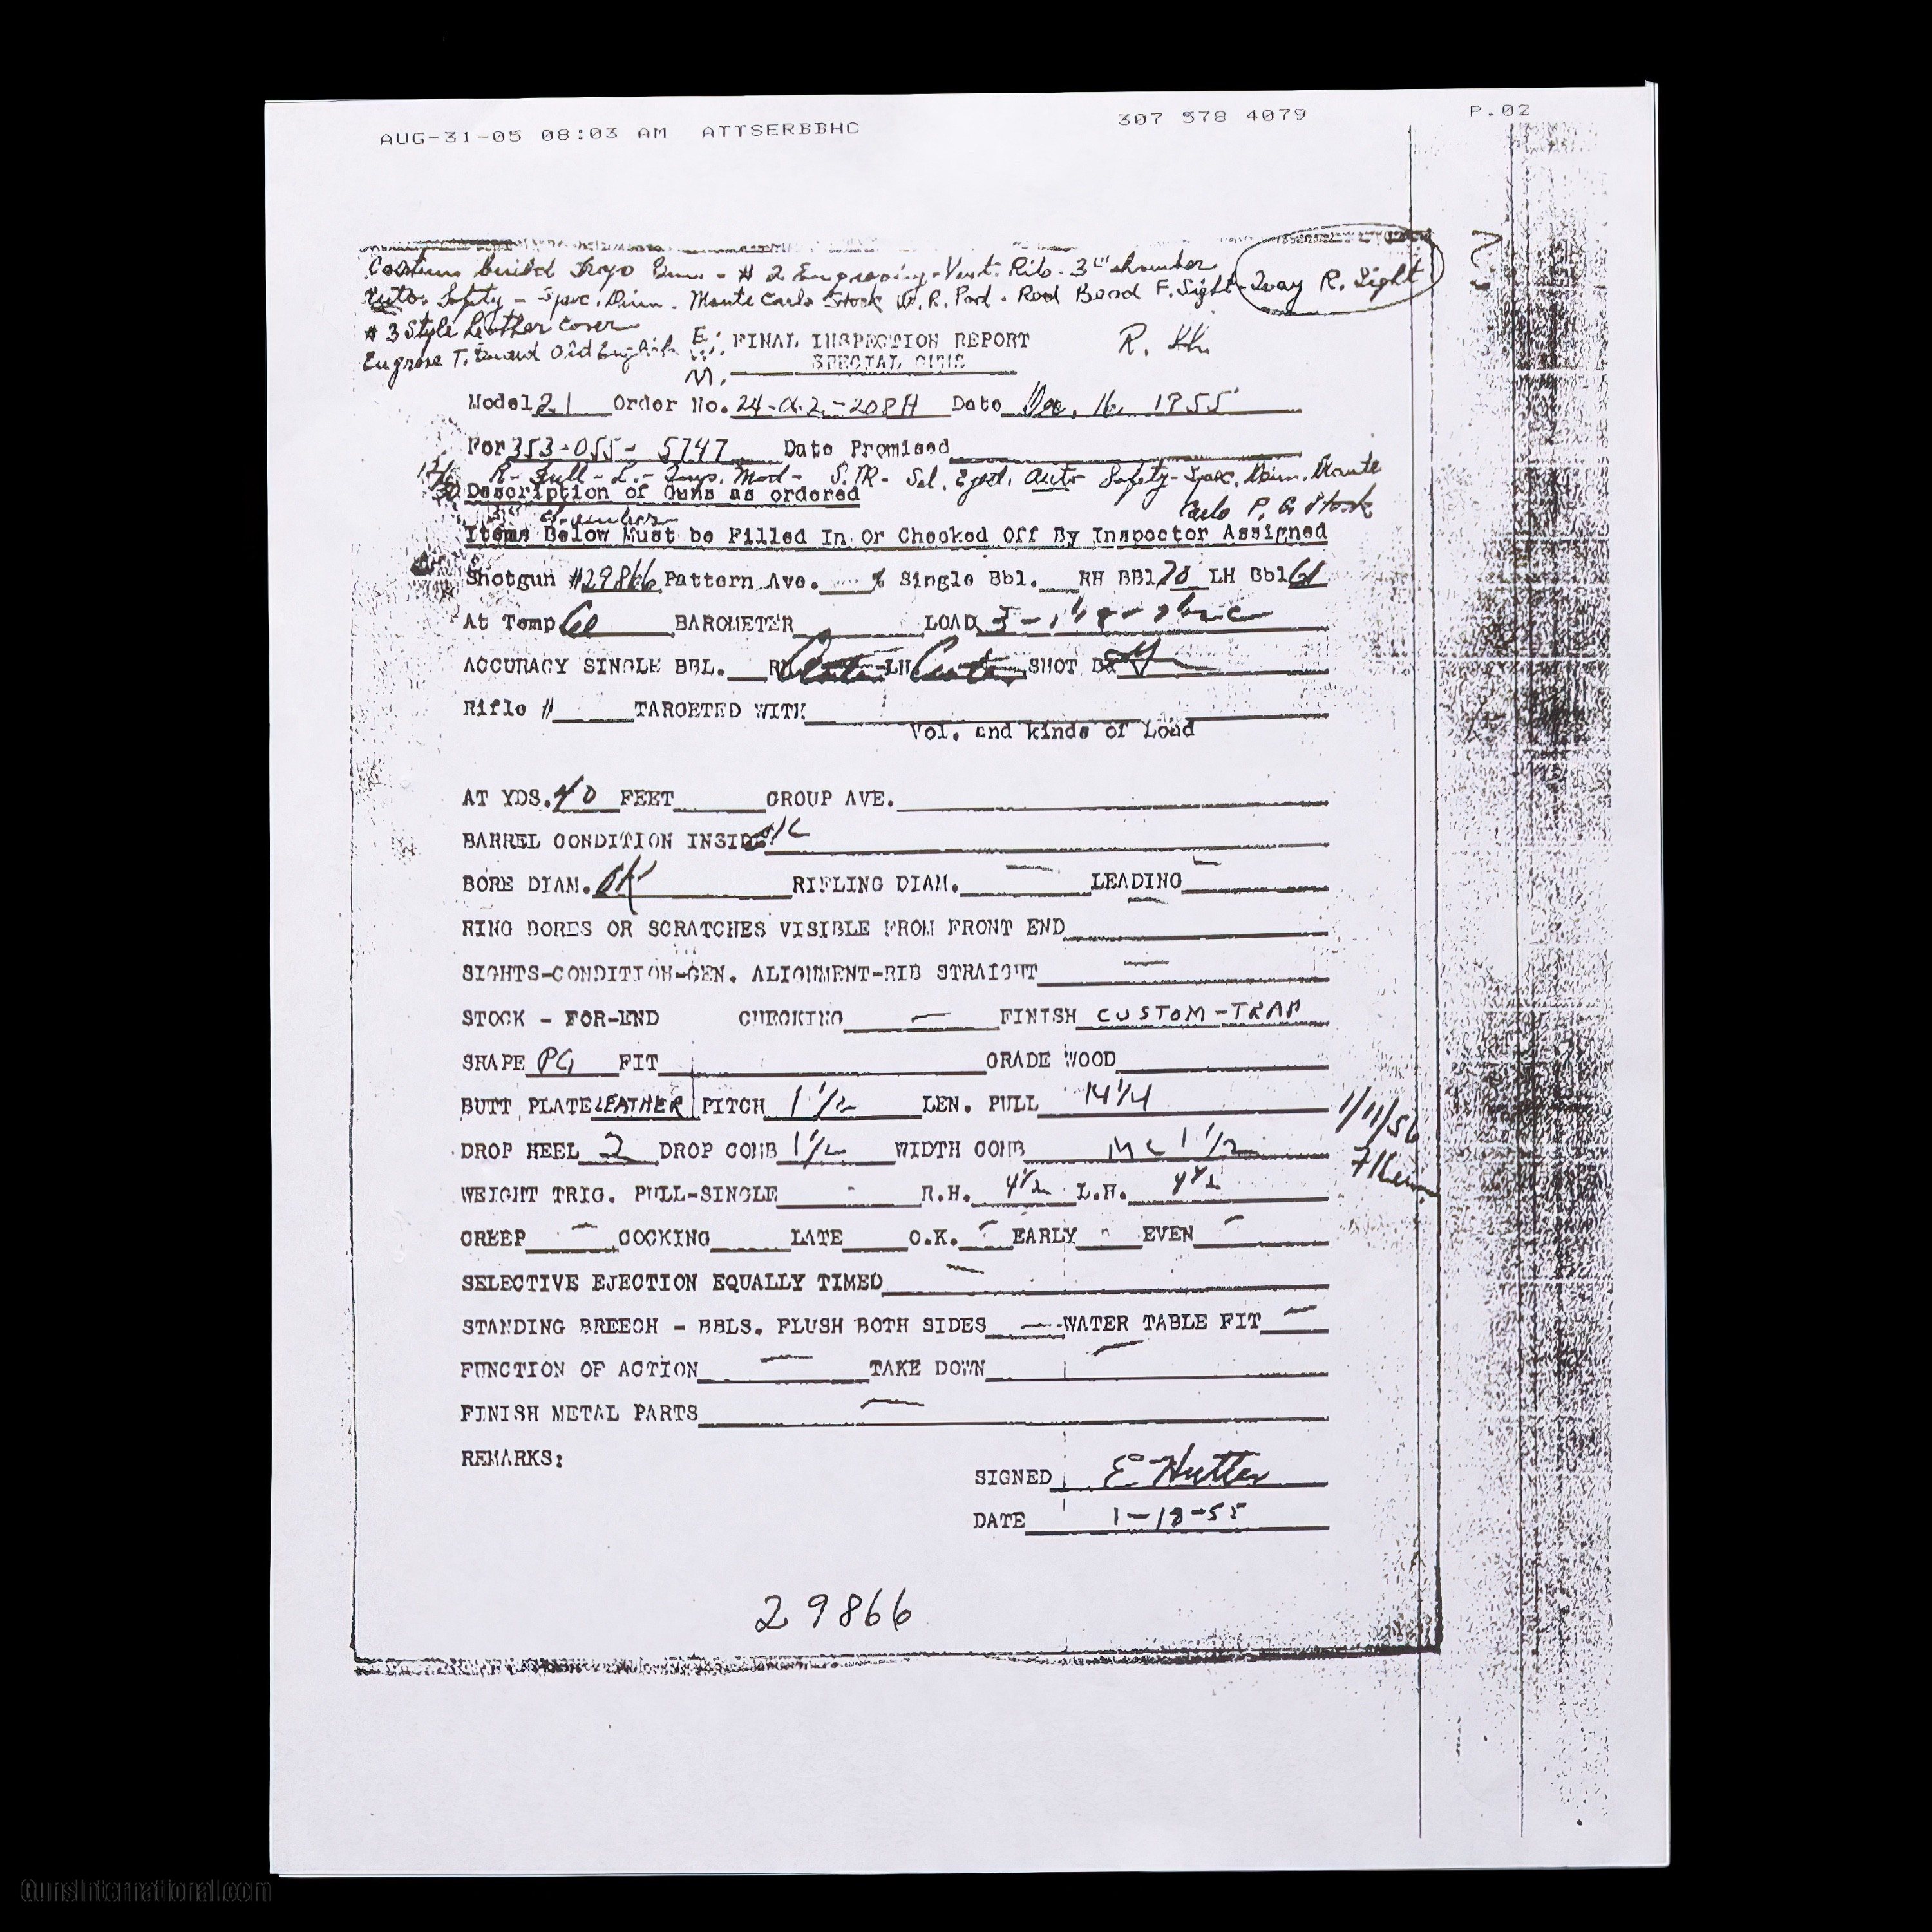 AUG-31-05 08:03 AM ATTSERBBHC 307 578 4079 P.02
Custom build Trap Gun - # 2 Engraving - Vent. Rib - 3" chamber
Auto Safety - Spec. Dim. Monte Carlo Stock W. R. Pad. Red Bead F. Sight - 2way R. Sight
# 3 Style Leather cover
Engrave T. Old English
FINAL INSPECTION REPORT
SPECIAL GUNS
Model 21 Order No. 24-A.2.-208H Date Dec. 16, 1955
For 353-055- 5747 Date Promised
R- Full - L.- Imp. Mod - S.TR- Sel. Eject. Auto Safety - Spec. Dim. Monte
Carlo P. G. Stock
Description of Guns as ordered
3" chambers
Items Below Must be Filled In Or Checked Off By Inspector Assigned
Shotgun #29866 Pattern Ave. % Single Bbl. RH BBl 70 LH Bbl 61
At Temp 60 BAROMETER LOAD
ACCURACY SINGLE BBL. RH LH SHOT BY
Rifle # TARGETED WITH
Vol. and kinds of Load
AT YDS. 40 FEET GROUP AVE.
BARREL CONDITION INSIDE OK
BORE DIAM. OK RIFLING DIAM. LEADING
RING BORES OR SCRATCHES VISIBLE FROM FRONT END
SIGHTS-CONDITION-GEN. ALIGNMENT-RIB STRAIGHT
STOCK - FOR-END CHECKING FINISH CUSTOM-TRAP
SHAPE PG FIT GRADE WOOD
BUTT PLATE LEATHER PITCH 1 1/2 LEN. PULL 14 1/4
1/11/56
DROP HEEL 2 DROP COMB 1 1/2 WIDTH COMB MC 1 1/2
WEIGHT TRIG. PULL-SINGLE R.H. 4 1/2 L.H. 4 1/2
CREEP COCKING LATE O.K. EARLY EVEN
SELECTIVE EJECTION EQUALLY TIMED
STANDING BREECH - BBLS. FLUSH BOTH SIDES WATER TABLE FIT
FUNCTION OF ACTION TAKE DOWN
FINISH METAL PARTS
REMARKS:
SIGNED E Hutter
DATE 1-18-55
29866
GunsInternational.com